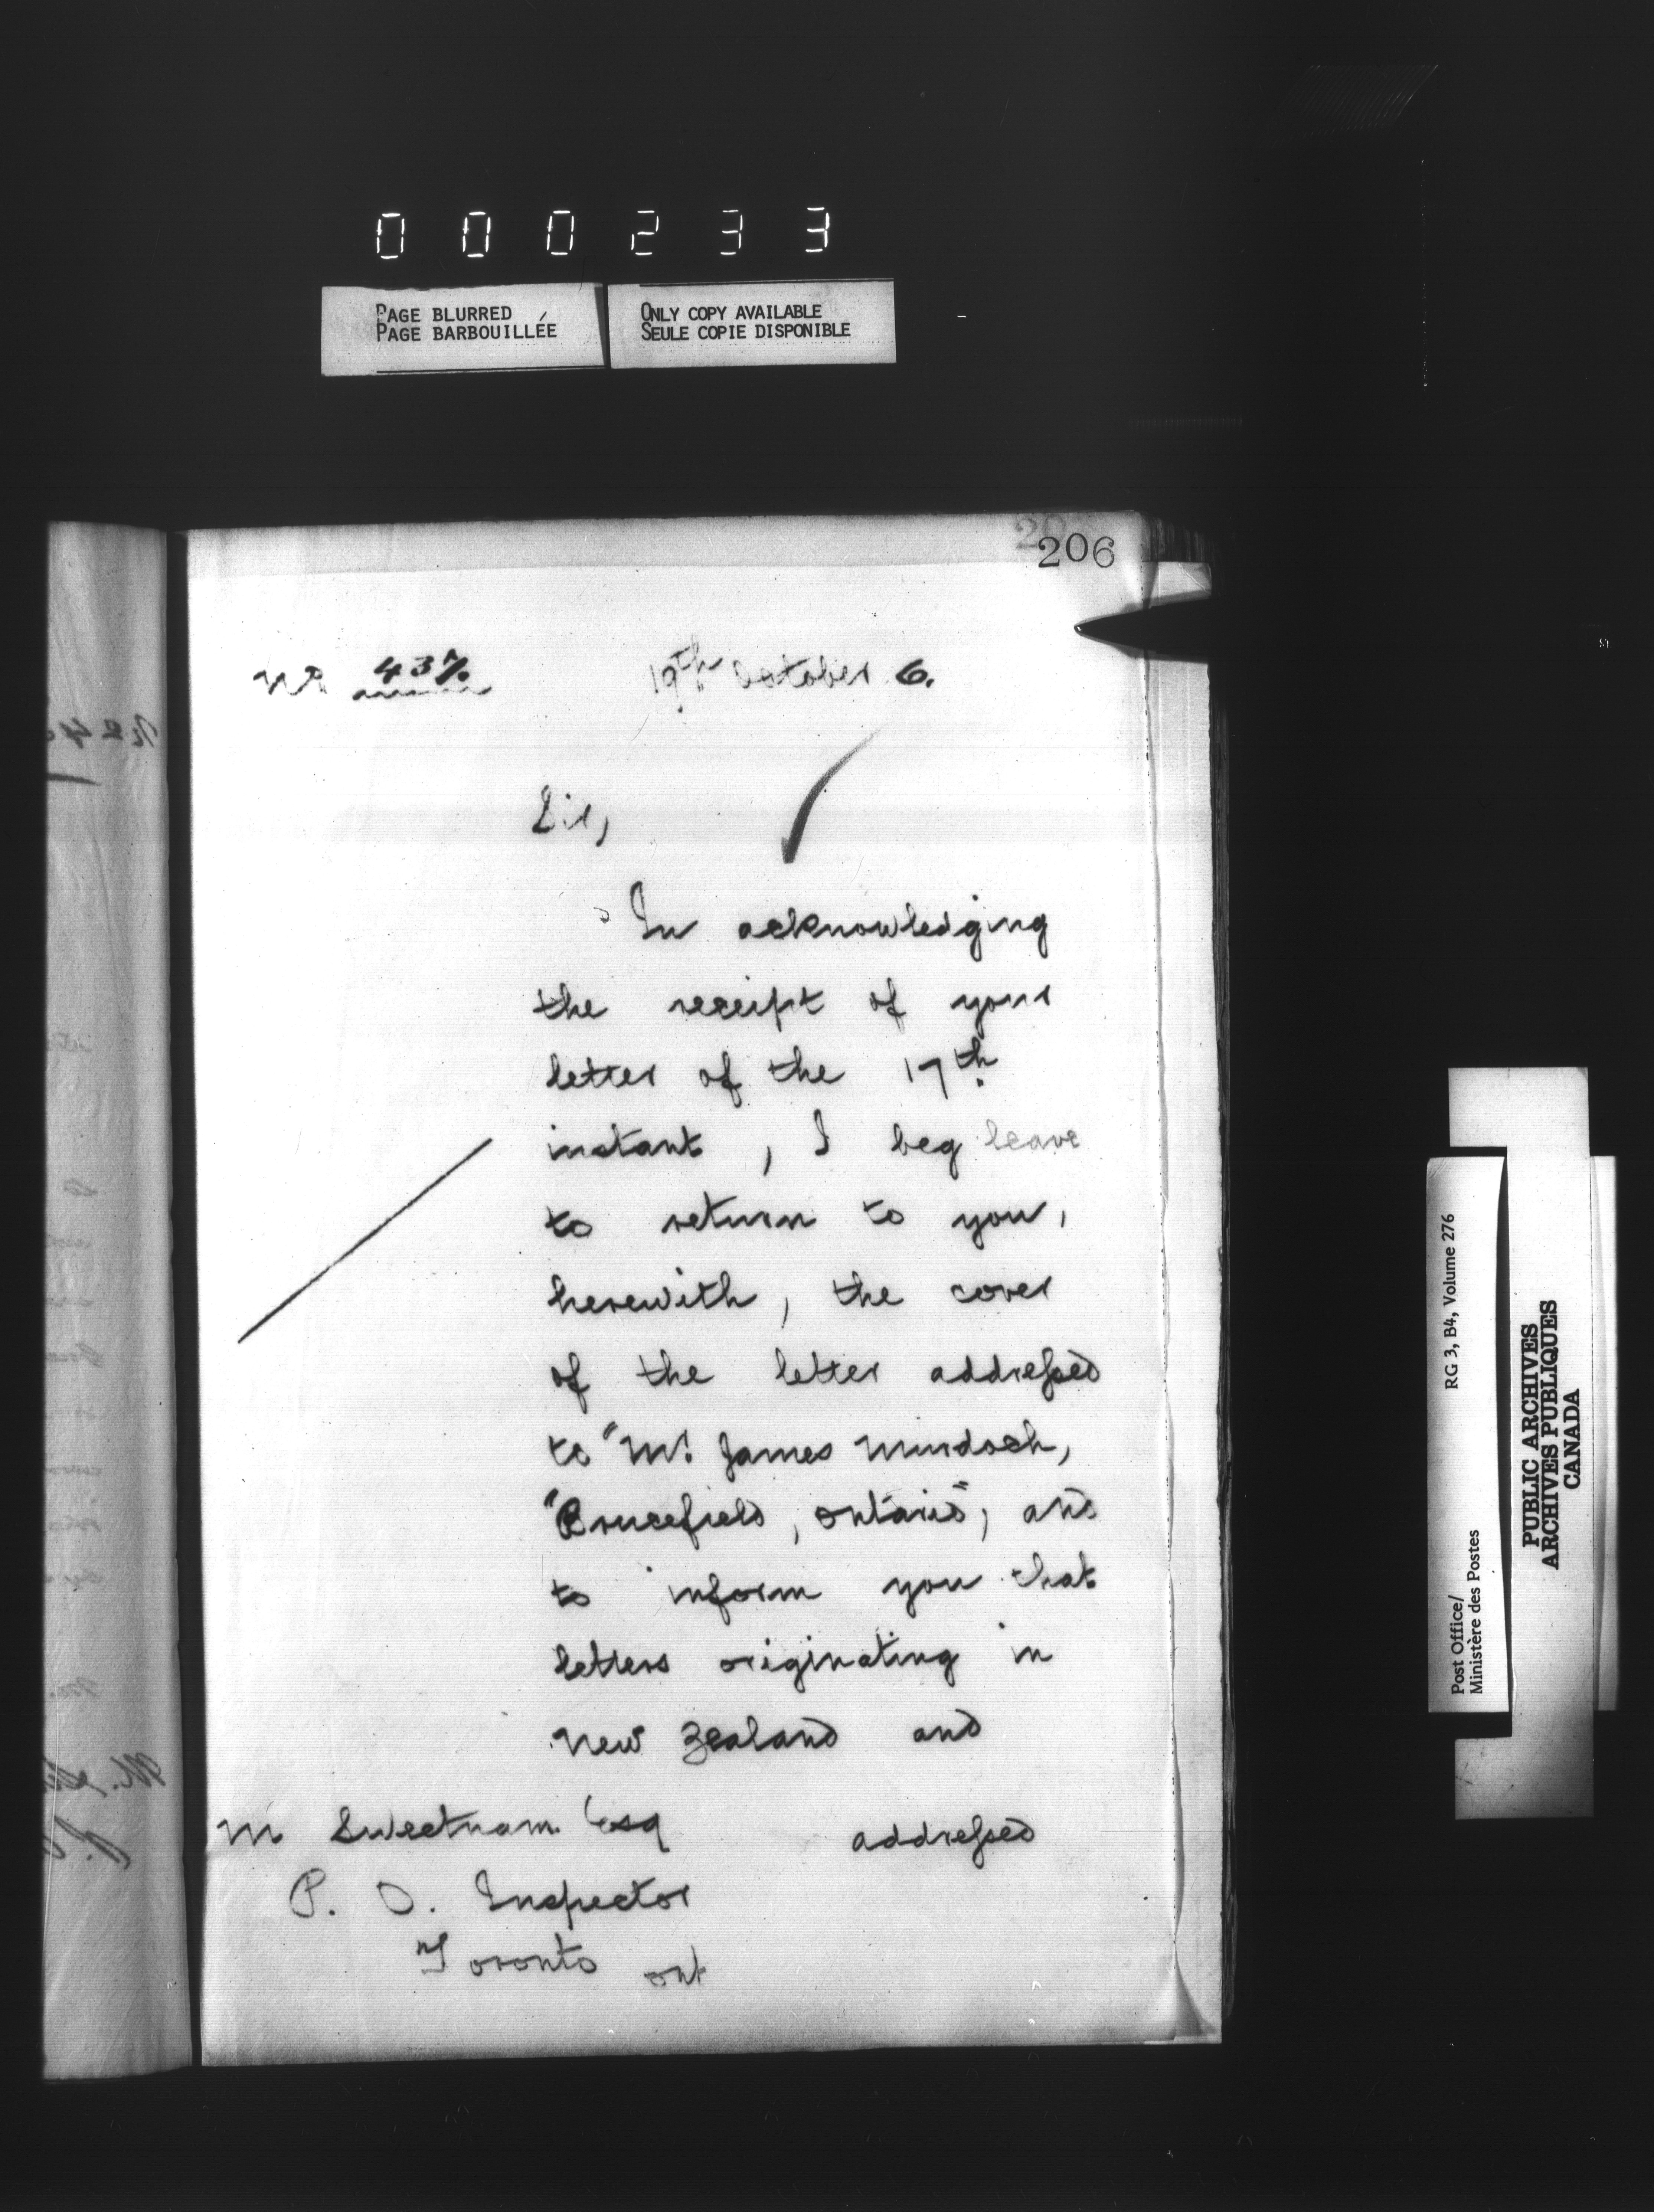 000233
PAGE BLURRED
PAGE BARBOUILLÉE
ONLY COPY AVAILABLE
SEULE COPIE DISPONIBLE
206
No 437.
19th October 6.
Sir,
In acknowledging
the receipt of your
letter of the 17th
instant, I beg leave
to return to you,
herewith, the cover
of the letter addressed
to "Mr. James Murdoch,
"Brucefield, Ontario", and
to inform you that
letters originating in
New Zealand and
addressed
M Sweetnam Esq
P. O. Inspector
Toronto Ont
RG 3, B4, Volume 276
Post Office/
Ministère des Postes
PUBLIC ARCHIVES
ARCHIVES PUBLIQUES
CANADA